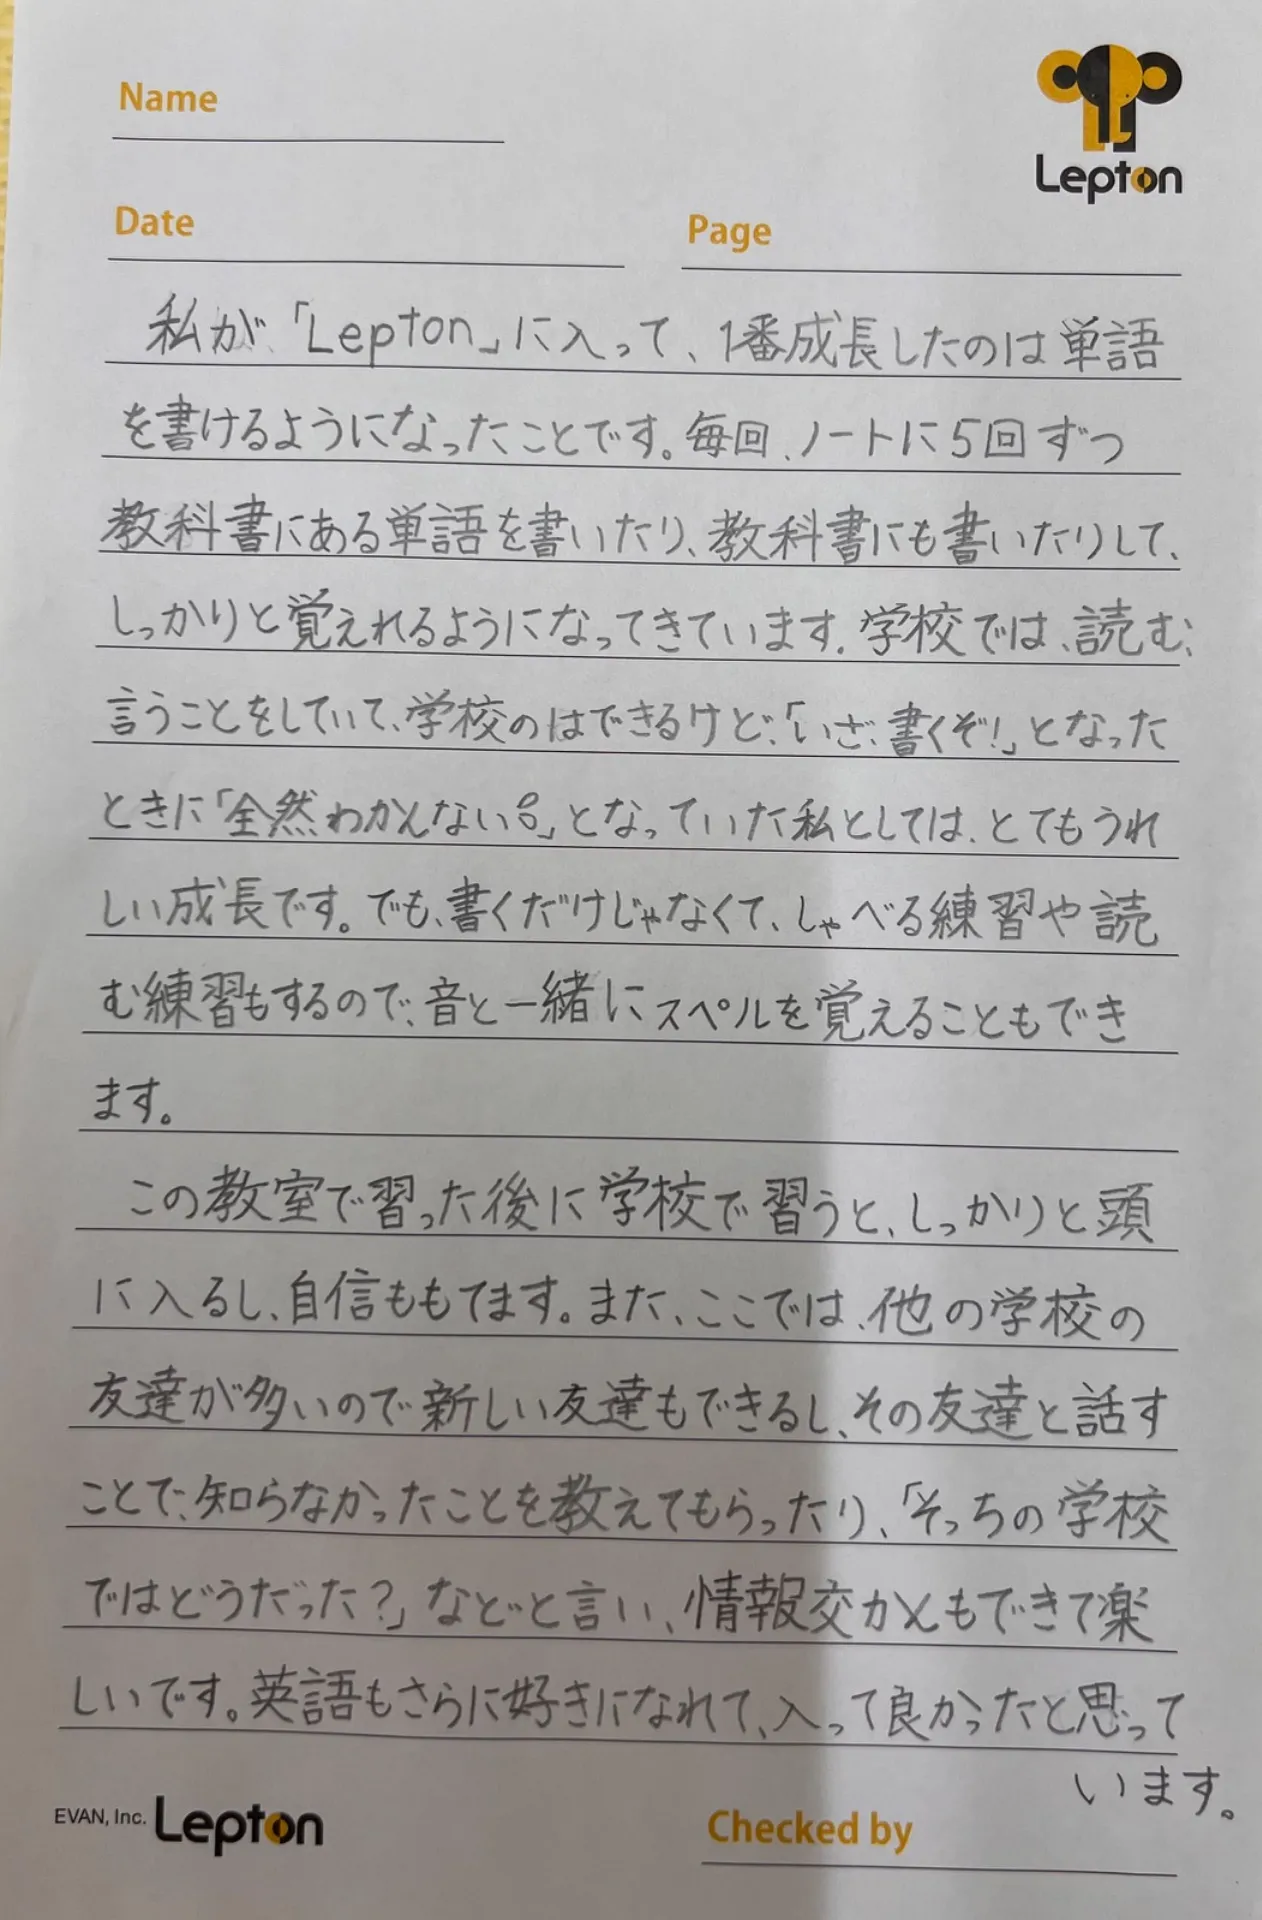 Name
Lepton
Date
Page
私が、「Lepton」に入って、1番成長したのは単語
を書けるようになったことです。毎回、ノートに5回ずつ
教科書にある単語を書いたり、教科書にも書いたりして、
しっかりと覚えれるようになってきています。学校では、読む、
言うことをしていて、学校のはできるけど、「いざ、書くぞ!」となった
ときに「全然わかんない。」となっていた私としては、とてもうれ
しい成長です。でも、書くだけじゃなくて、しゃべる練習や読
む練習もするので、音と一緒にスペルを覚えることもでき
ます。
この教室で習った後に学校で習うと、しっかりと頭
に入るし、自信ももてます。また、ここでは、他の学校の
友達が多いので新しい友達もできるし、その友達と話す
ことで、知らなかったことを教えてもらったり、「そっちの学校
ではどうだった?」などと言い、情報交かんもできて楽
しいです。英語もさらに好きになれて、入って良かったと思って
います。
EVAN, Inc. Lepton
Checked by